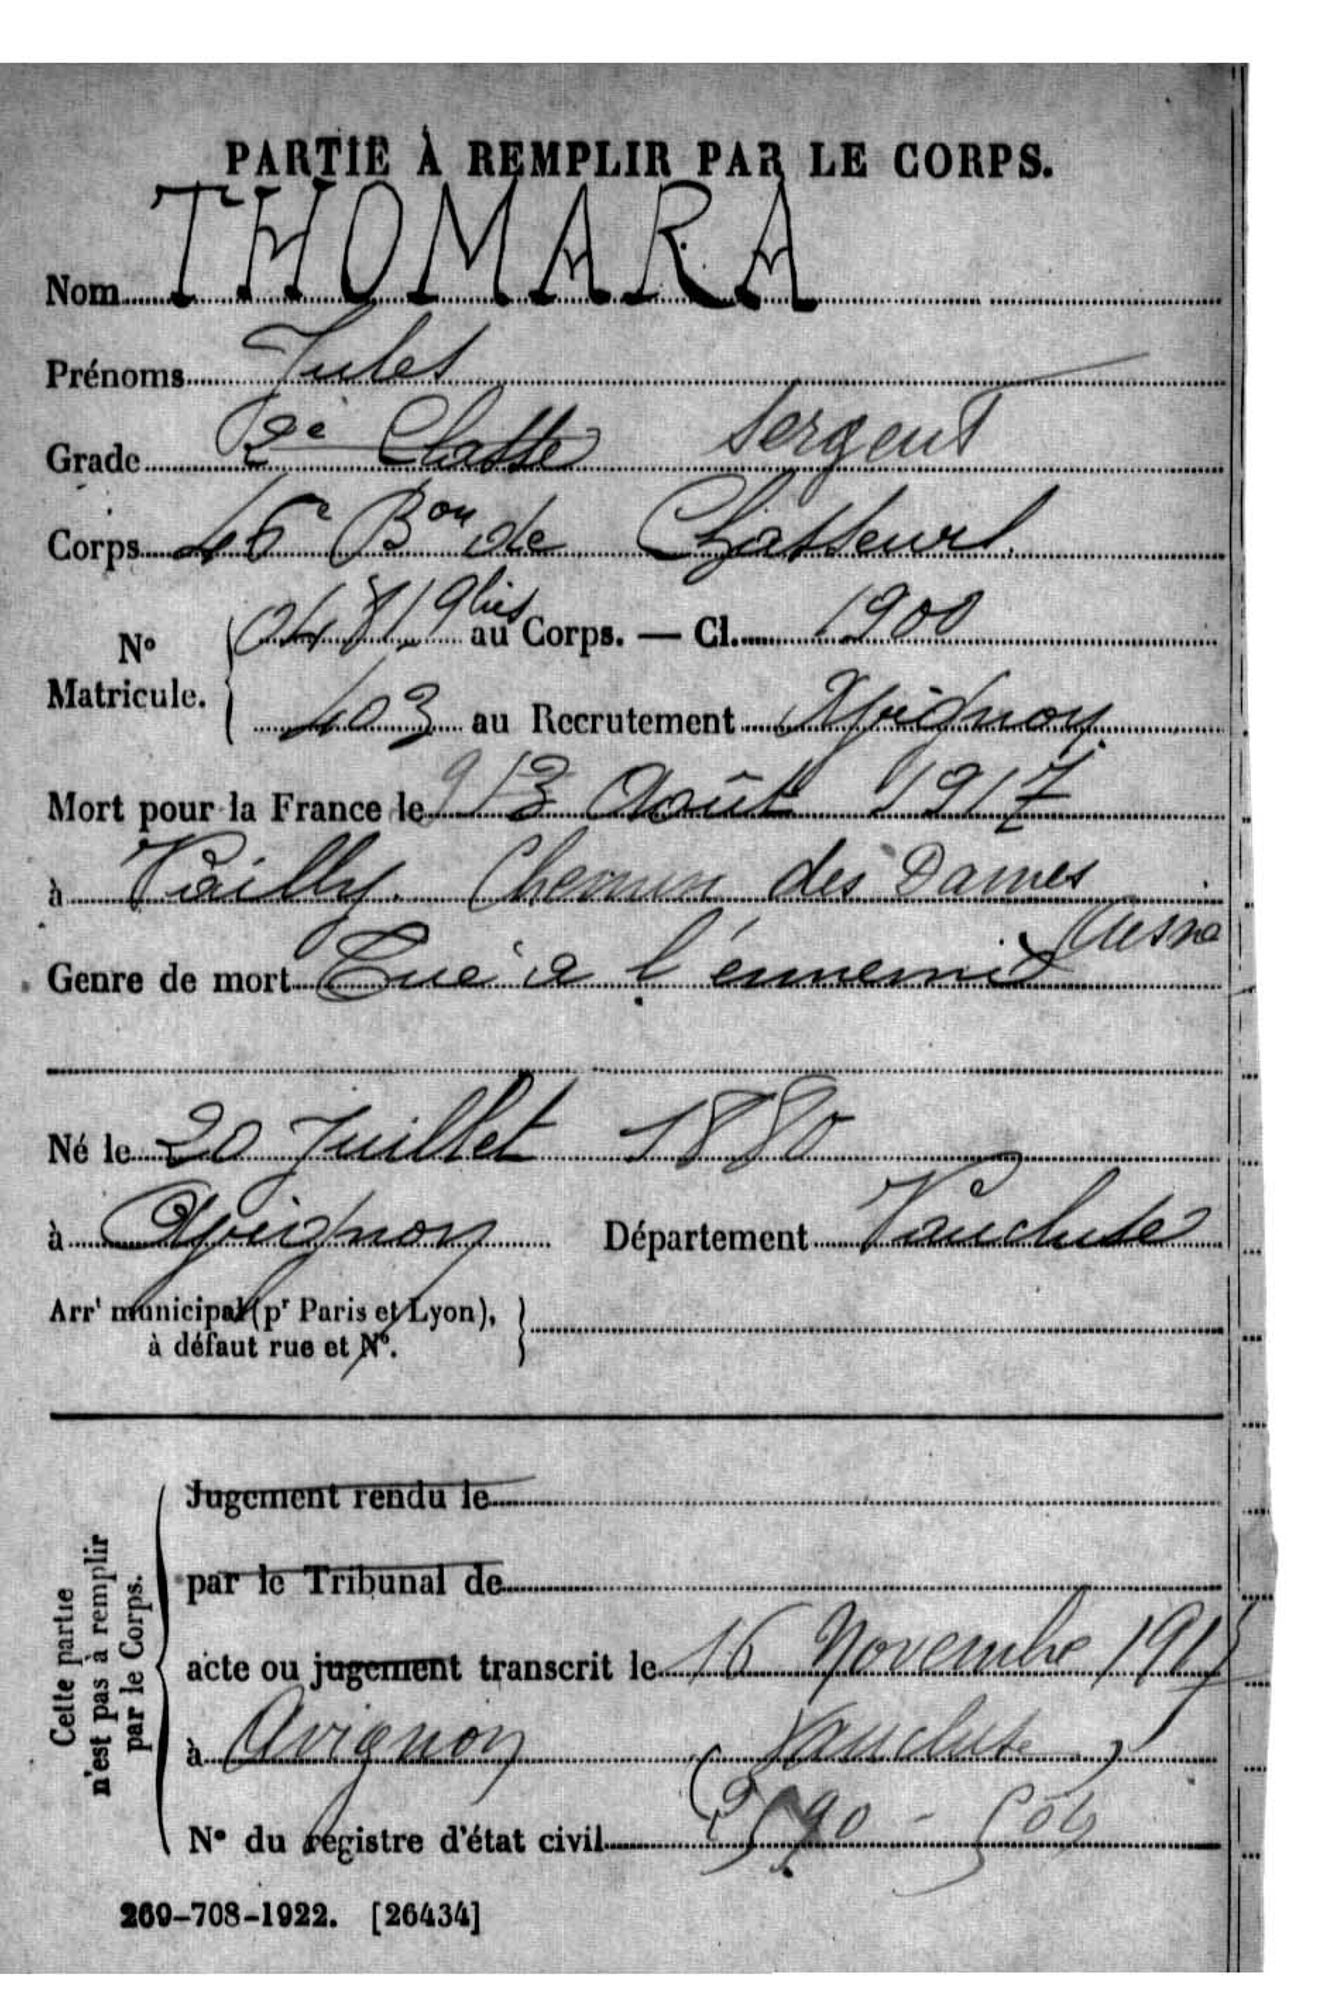 PARTIE À REMPLIR PAR LE CORPS.
Nom THOMARA
Prénoms Jules
Grade 2e Classe Sergent
Corps 46e Bon de Chasseurs
04819bis au Corps. — Cl. 1900
N° Matricule.
403 au Recrutement Avignon
Mort pour la France le 13 Août 1917
à Vailly. Chemin des Dames
Aisne
Genre de mort Tué à l'ennemi
Né le 20 Juillet 1880
à Avignon Département Vaucluse
Arrt municipal (pr Paris et Lyon),
à défaut rue et N°.
Cette partie
n'est pas à remplir
par le Corps.
Jugement rendu le
par le Tribunal de
acte ou jugement transcrit le 16 Novembre 1917
à Avignon (Vaucluse)
N° du registre d'état civil
269-708-1922. [26434]